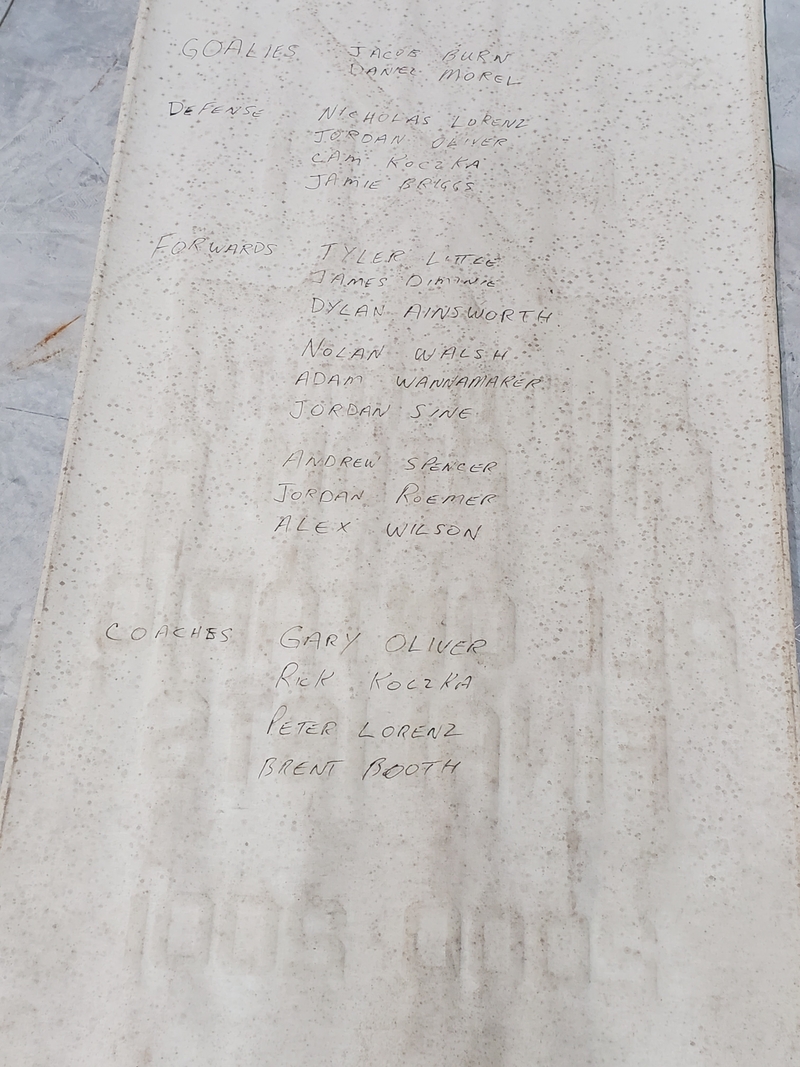 GOALIES JACOB BURN
DANIEL MOREL
DEFENSE NICHOLAS LORENZ
JORDAN OLIVER
CAM KOCZKA
JAMIE BRIGGS
FORWARDS TYLER LITTLE
JAMES DIMINIE
DYLAN AINSWORTH
NOLAN WALSH
ADAM WANNAMAKER
JORDAN SINE
ANDREW SPENCER
JORDAN ROEMER
ALEX WILSON
COACHES GARY OLIVER
RICK KOCZKA
PETER LORENZ
BRENT BOOTH